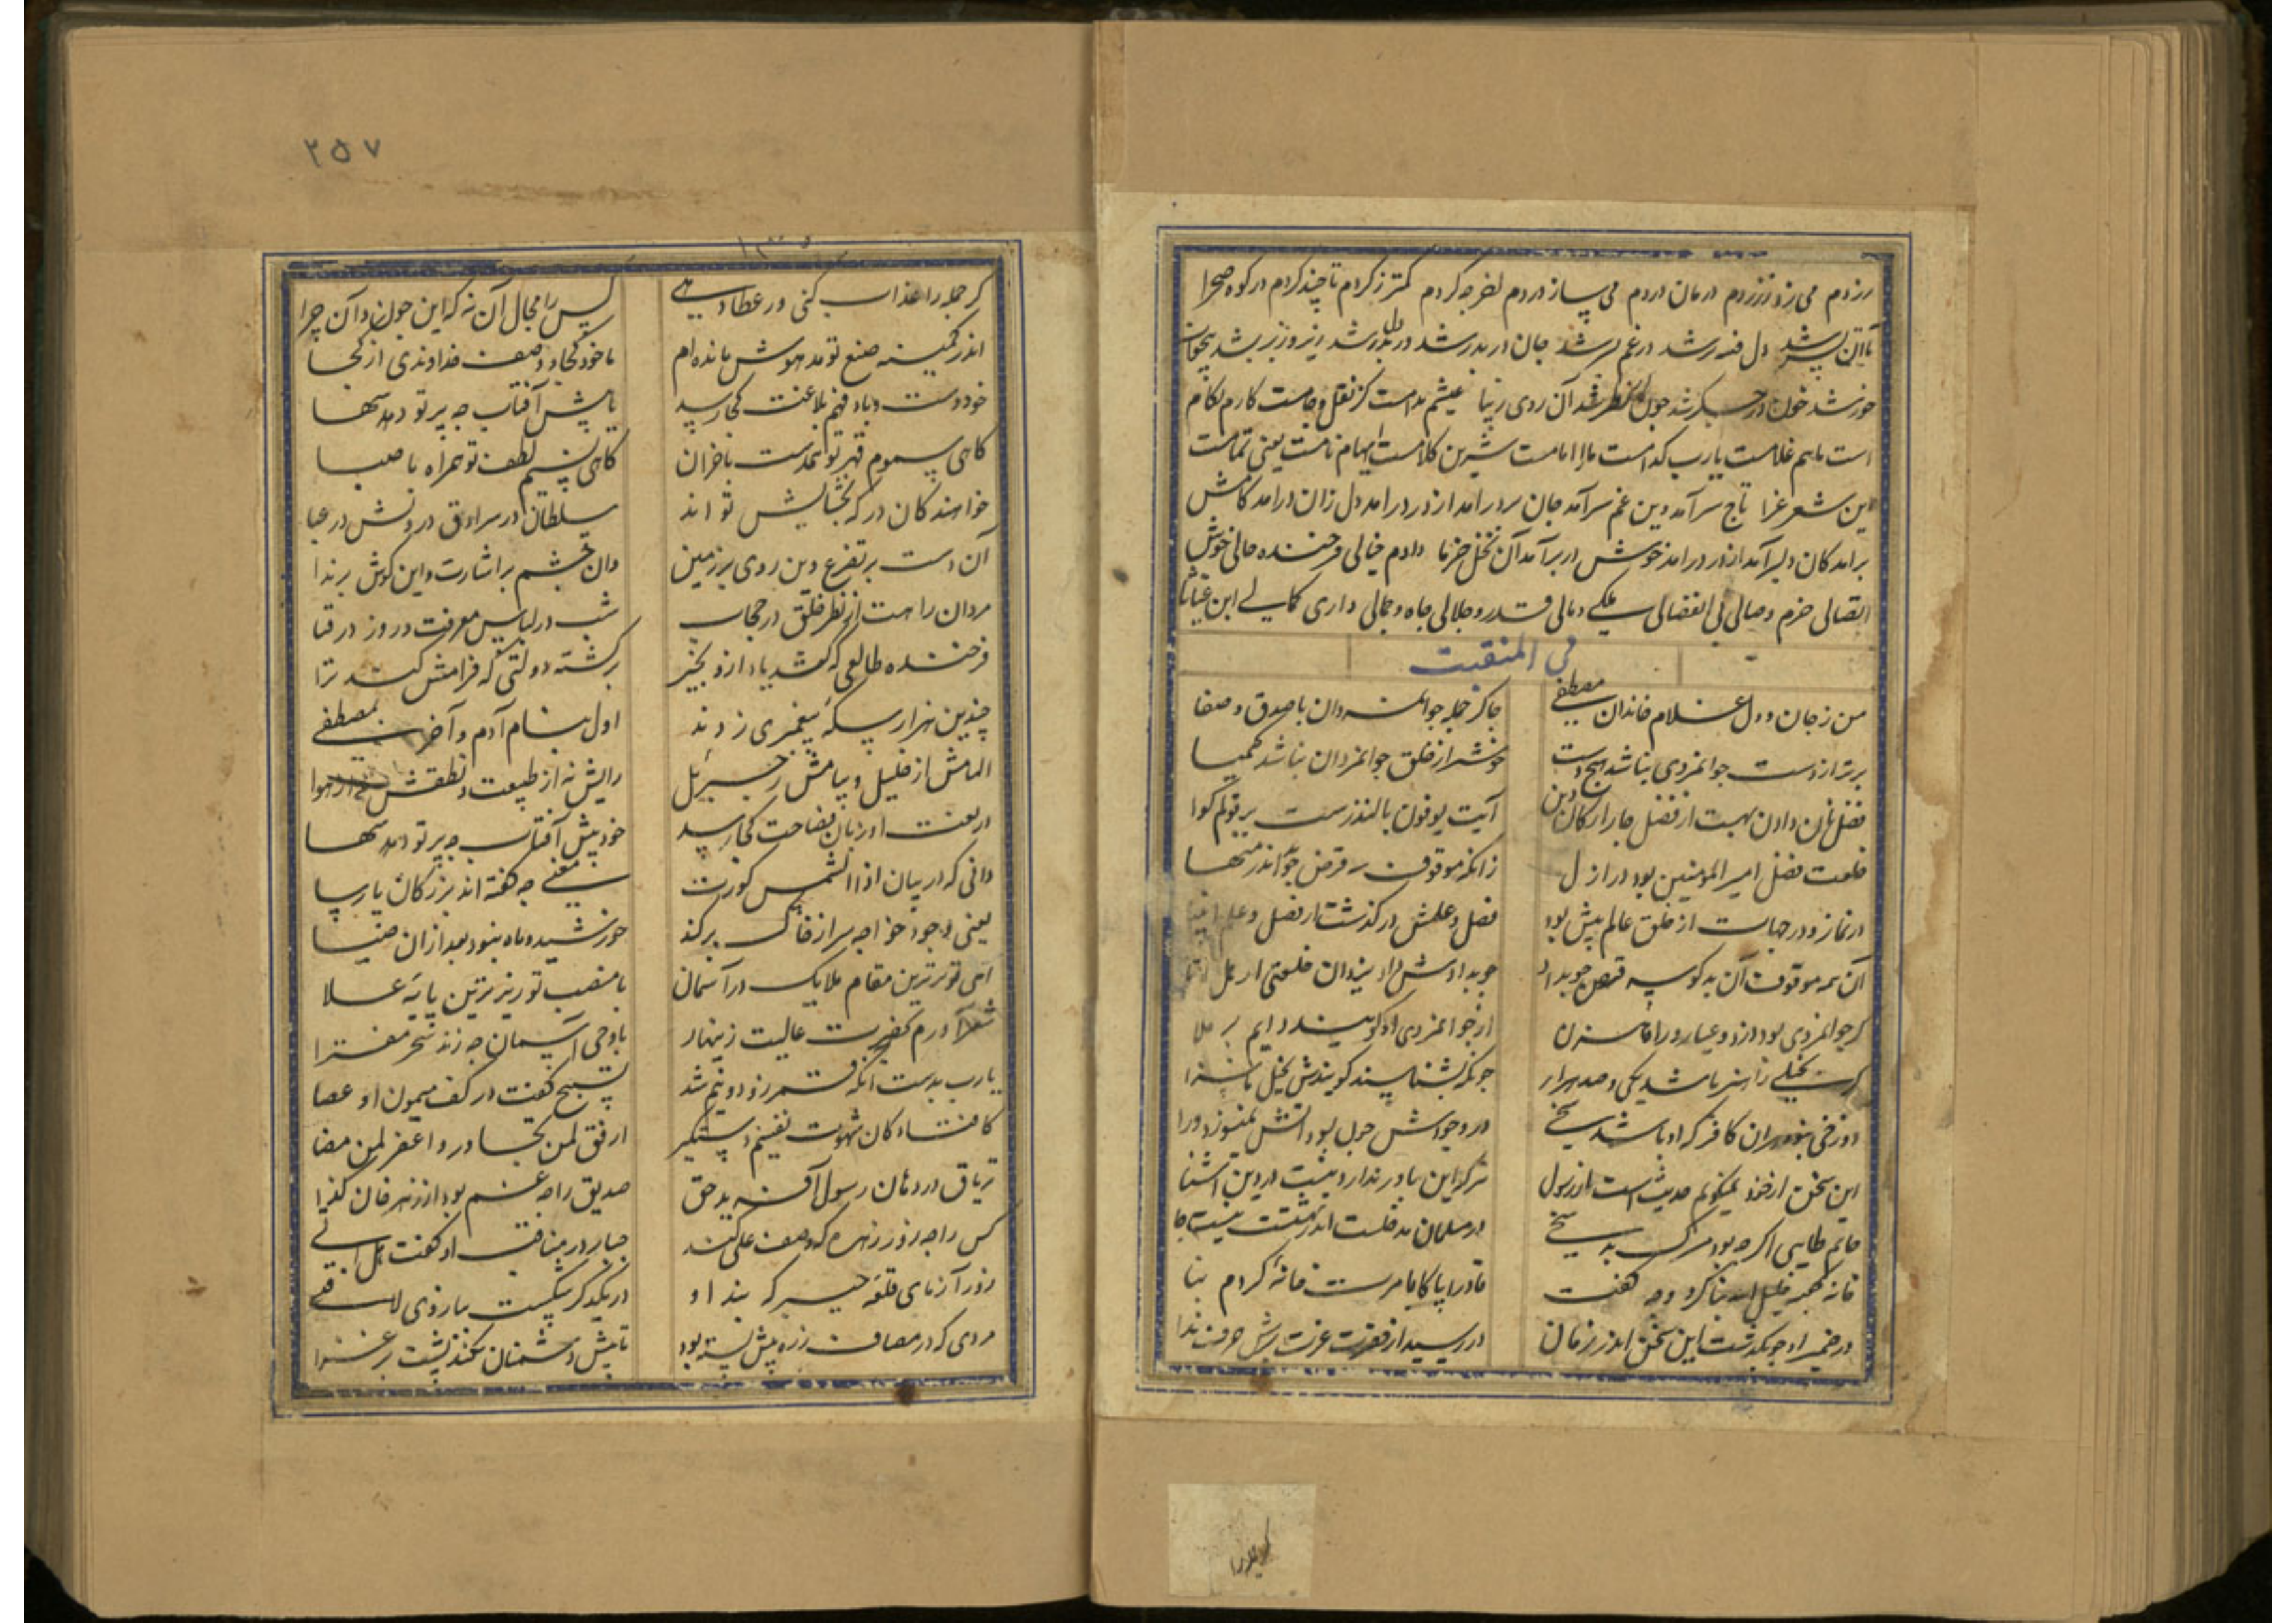 رزدم می زد زردم درمان دردم می سازدردم لخرجه کردم کمتر زکردم تاچند کردم در کوه صحرا
دل فتنه رشد در غم بسر شد جان دربدر شد زیر و زبر شد
خورشد خون در جگر شد چون در نظر شد آن روی زیبا عیشم مدامست کز نقل و جامست کارم بکام
است ماهم غلامست یارب کدامست مارا امامست شیرین کلامست ایهام نامست یعنی تمامست
این شعر غرا تاج سرآمد وین غم سرآمد جان سردرامد از در درامد دل زان درامد کامش
برامد کان دلبر آمد از در درامد خوش دربرآمد آن نخل خرما دادم خیالی فرخنده حالی خوش
اتصالی خرم وصالی بی انفصالی ملکی و مالی قدر و جلالی جاه و جمالی داری کمالی ابن غیاثا
فی المنقبت
من ز جان و دل غلام خاندان مصطفی چاکر جمله جوانمردان باصدق و صفا
برتر از دست جوانمردی نباشد هیچ دست خوشتر از خلق جوانمردان نباشد کیمیا
فضل نان دادن بهست از فضل چار ارکان دین آیت یوفون بالنذرست برقولم گوا
خلعت فضل امیرالمومنین بود در ازل زانکه موقوف قرص جو اندر سخا
در نماز و در جهاد از خلق عالم بیش بود فضل و علمش درگذشت از فضل و علم
آن همه موقوف آن بد کو سه قرص جو بداد چو بدادش داد یزدان خلعتی از هل اتی
گر جوانمردی بود دزد و عیار و راه زن از جوانمردی او گویند دایم برملا
گر بخیلی را هنر باشد یکی و صد هزار چونکه بشناسند گویندش بخیل ناسزا
دوزخی نبود بدان کافر که او باشد سخی در وجودش چون بود آتش نسوزد ورا
این سخن از خود نمیگویم حدیث است از رسول هرکه این باور ندارد نیست در دین آشنا
حاتم طایی اگرچه بود مشرک بد سخی در مسلمان مدخلست اندر بهشتت نیست جا
خانه کعبه خلیل الله بنا کرد و چه گفت قادرا پاکا بامرت خانه کردم بنا
در ضمیر او چو بگذشت این سخن اندر زمان دررسید از حضرت عزت برش حرف ندا
۲۵۷
گر جمله را عذاب کنی ور عطا دهی کس را مجال آن نه که این چون و آن چرا
اندر کمینه صنع تو مدهوش مانده ام ما خود کجا و وصف خداوندی از کجا
خود دست و پای فهم بلاغت کجا رسد با پیش آفتاب چه پرتو دهد سها
گاهی سموم قهر تو همدست با خزان گاهی نسیم لطف تو همراه با صبا
خواهندگان درگه بخشایش تو اند سلطان در سرادق و درویش در عبا
آن دست بر تضرع و این روی بر زمین وان چشم بر اشارت و این گوش بر ندا
مردان راهت از نظر خلق در حجاب شب در لباس معرفت و روز در قبا
فرخنده طالعی که کند یاد ازو بخیر برگشته دولتی که فرامش کند ترا
چندین هزار سکه پیغمبری زدند اول بنام آدم و آخر بمصطفی
الهامش از خلیل و پیامش ز جبرئیل رایش نه از طبیعت و نطقش نه از هوا
در نعت او زبان فصاحت کجا رسد خود پیش آفتاب چه پرتو دهد سها
دانی که در بیان اذا الشمس کورت معنی چه گفته اند بزرگان پارسا
یعنی وجود خواجه سر از خاک برکند خورشید و ماه نبود بعد از آن ضیا
ای قوترترین مقام ملایک در آسمان با منصب تو زیرترین پایه علا
شعر آورم بحضرت عالیت زینهار با وحی آسمان چه زند سحر مفترا
یارب بدست آنکه قمر زو دو نیم شد تسبیح گفت در کف میمون او عصا
کافتادگان شهوت نفسیم دستگیر ارفق لمن تجاوز واغفر لمن مضا
تریاق در دهان رسول آفریده حق صدیق را چه غم بود از زهر جان گزا
کس را چه زور و زهره که وصف علی کند جبار در مناقب او گفت هل اتی
زورآزمای قلعه خیبر که بند او در یکدگر شکست ببازوی لا فتی
مردی که در مصاف زره پیش بسته بود تا پیش دشمنان نکند پشت بر غزا